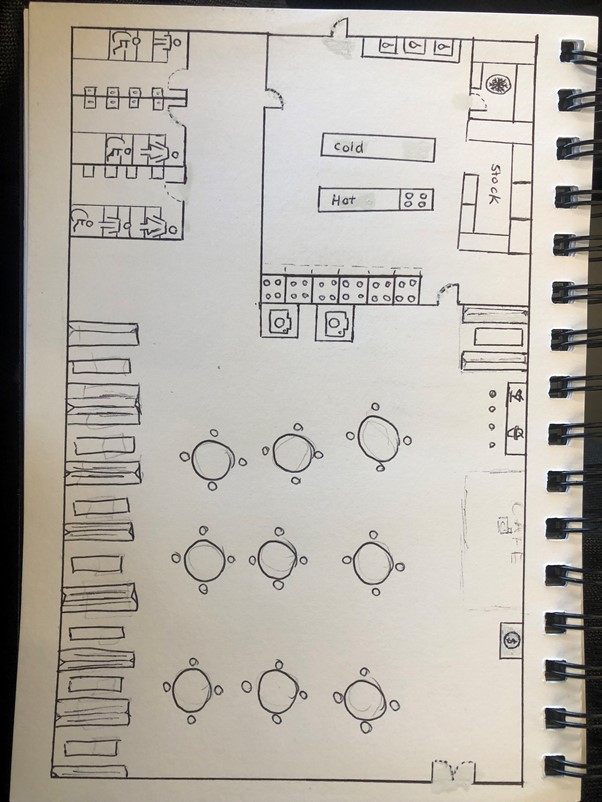 Cold
Hot
Stock
CAFE
$